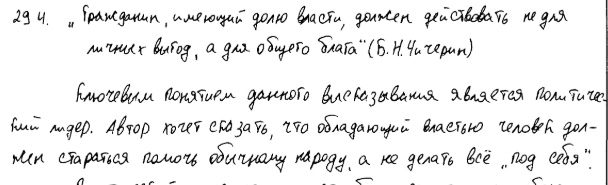 29 4. „Гражданин, имеющий долю власти, должен действовать не для
личных выгод, а для общего блага" (Б.Н.Чичерин)
Ключевым понятием данного высказывания является политичес-
кий лидер. Автор хочет сказать, что обладающий властью человек дол-
жен стараться помочь обычному народу, а не делать всё „под себя".